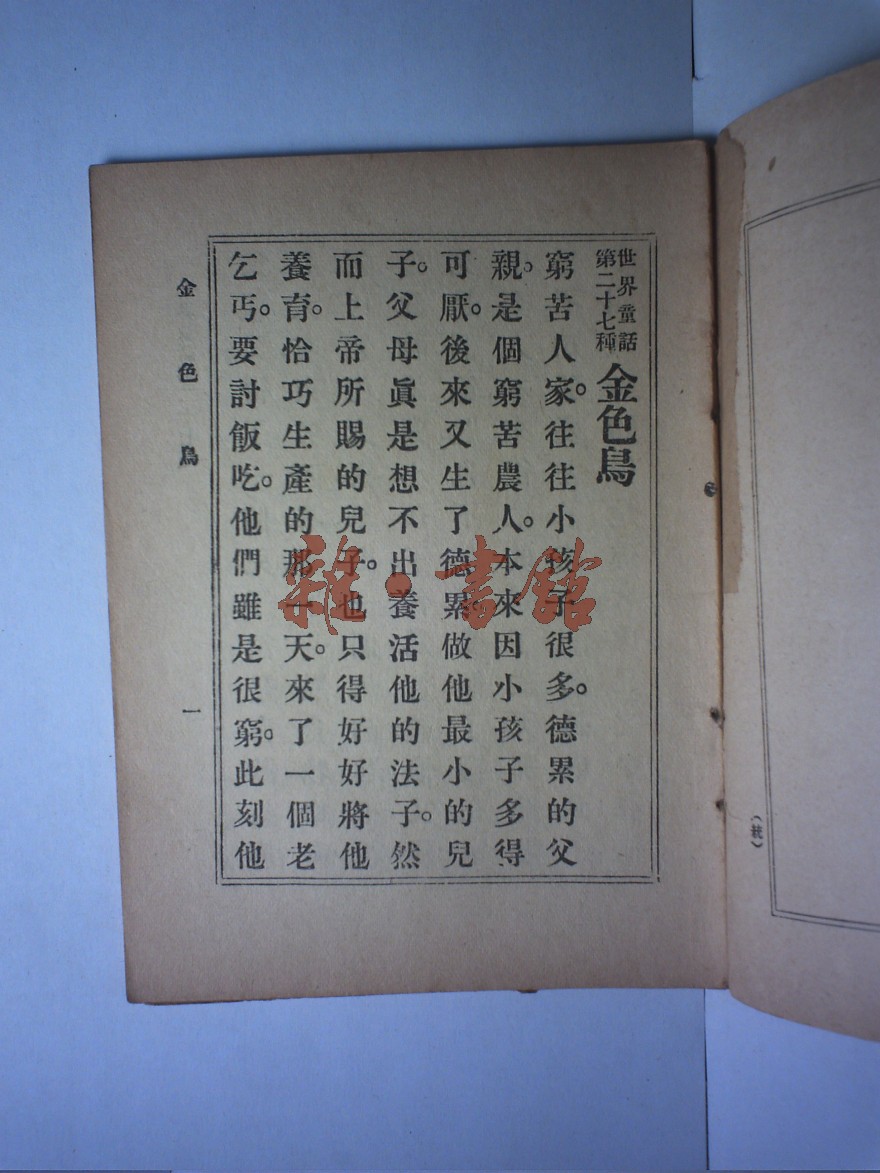 世界童話
第二十七種
金色鳥
窮苦人家。往往小孩子很多。德累的父
親。是個窮苦農人。本來因小孩子多得
可厭。後來又生了德累。做他最小的兒
子。父母眞是想不出養活他的法子。然
而上帝所賜的兒子。也只得好好將他
養育。恰巧生產的那一天。來了一個老
乞丐。要討飯吃。他們雖是很窮。此刻他
金色鳥
一
雜·書館